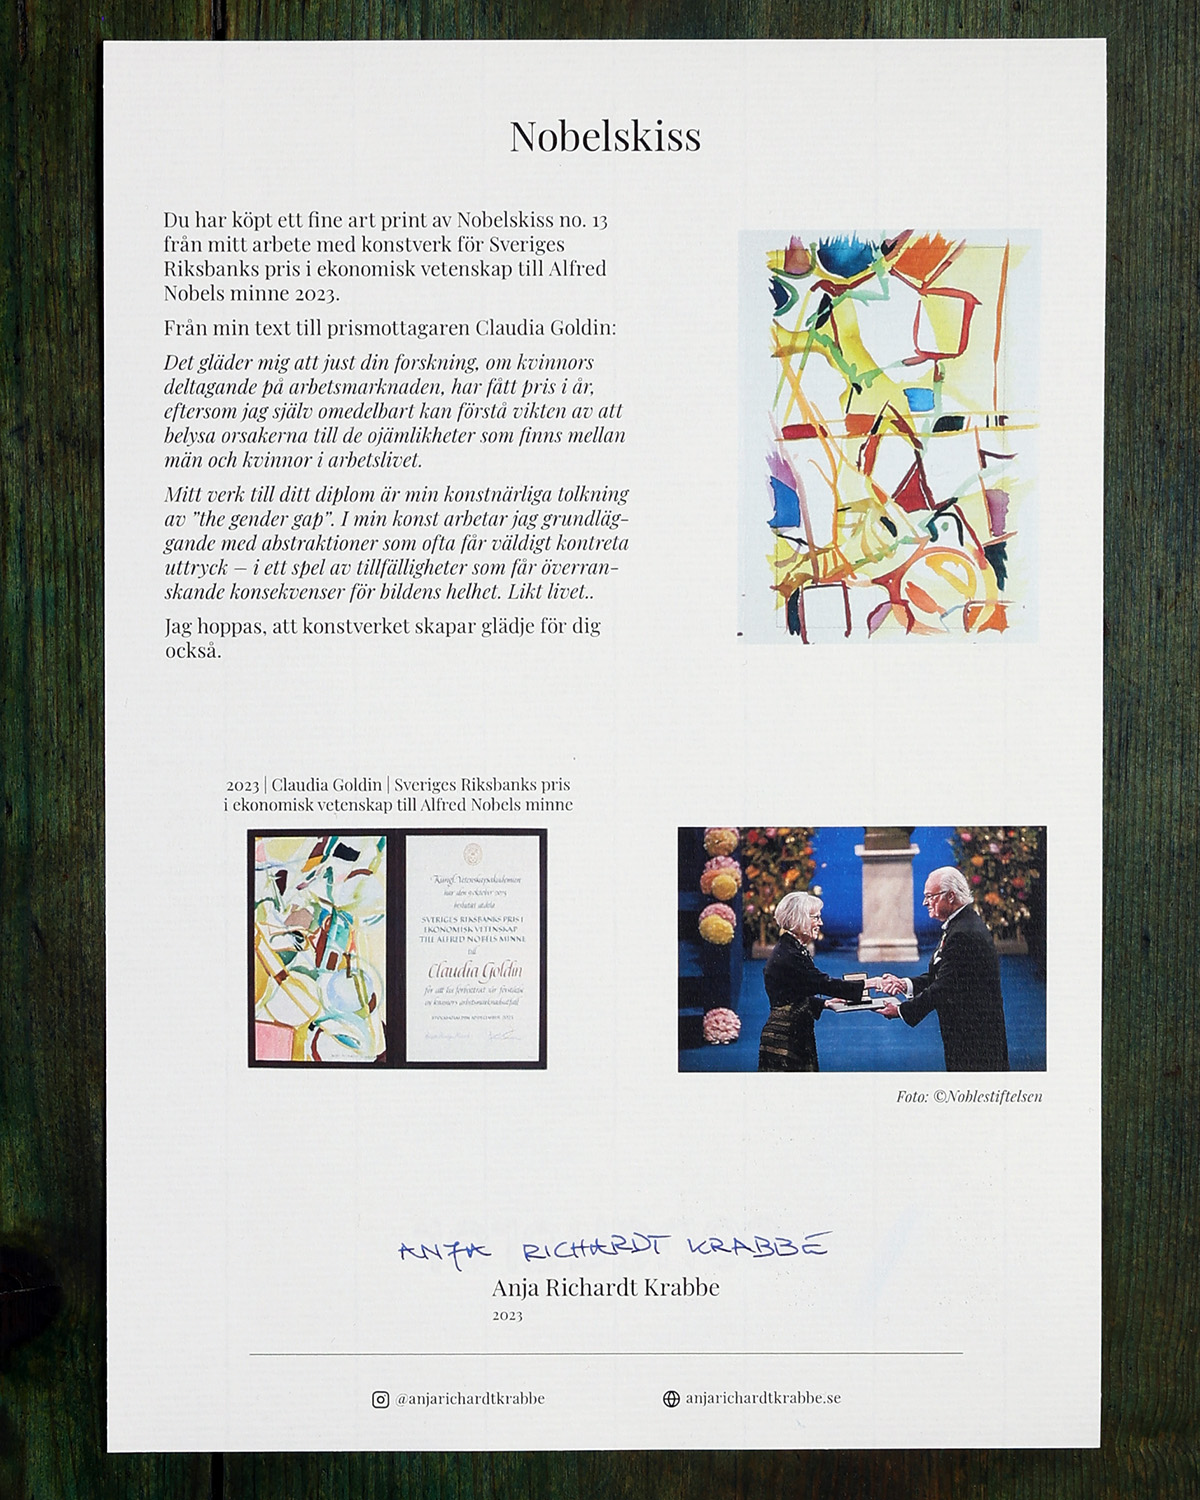 Nobelskiss
Du har köpt ett fine art print av Nobelskiss no. 13
från mitt arbete med konstverk för Sveriges
Riksbanks pris i ekonomisk vetenskap till Alfred
Nobels minne 2023.
Från min text till prismottagaren Claudia Goldin:
Det gläder mig att just din forskning, om kvinnors
deltagande på arbetsmarknaden, har fått pris i år,
eftersom jag själv omedelbart kan förstå vikten av att
belysa orsakerna till de ojämlikheter som finns mellan
män och kvinnor i arbetslivet.
Mitt verk till ditt diplom är min konstnärliga tolkning
av ”the gender gap”. I min konst arbetar jag grundläg-
gande med abstraktioner som ofta får väldigt kontreta
uttryck – i ett spel av tillfälligheter som får överran-
skande konsekvenser för bildens helhet. Likt livet..
Jag hoppas, att konstverket skapar glädje för dig
också.
2023 | Claudia Goldin | Sveriges Riksbanks pris
i ekonomisk vetenskap till Alfred Nobels minne
Kungl. Vetenskapsakademien
har den 9 oktober 2023
beslutat utdela
SVERIGES RIKSBANKS PRIS I
EKONOMISK VETENSKAP
TILL ALFRED NOBELS MINNE
till
Claudia Goldin
för att ha förbättrat vår förståelse
av kvinnors arbetsmarknadsutfall
STOCKHOLM DEN 10 DECEMBER 2023
Foto: ©Noblestiftelsen
ANJA RICHARDT KRABBE
Anja Richardt Krabbe
2023
@anjarichardtkrabbe
anjarichardtkrabbe.se